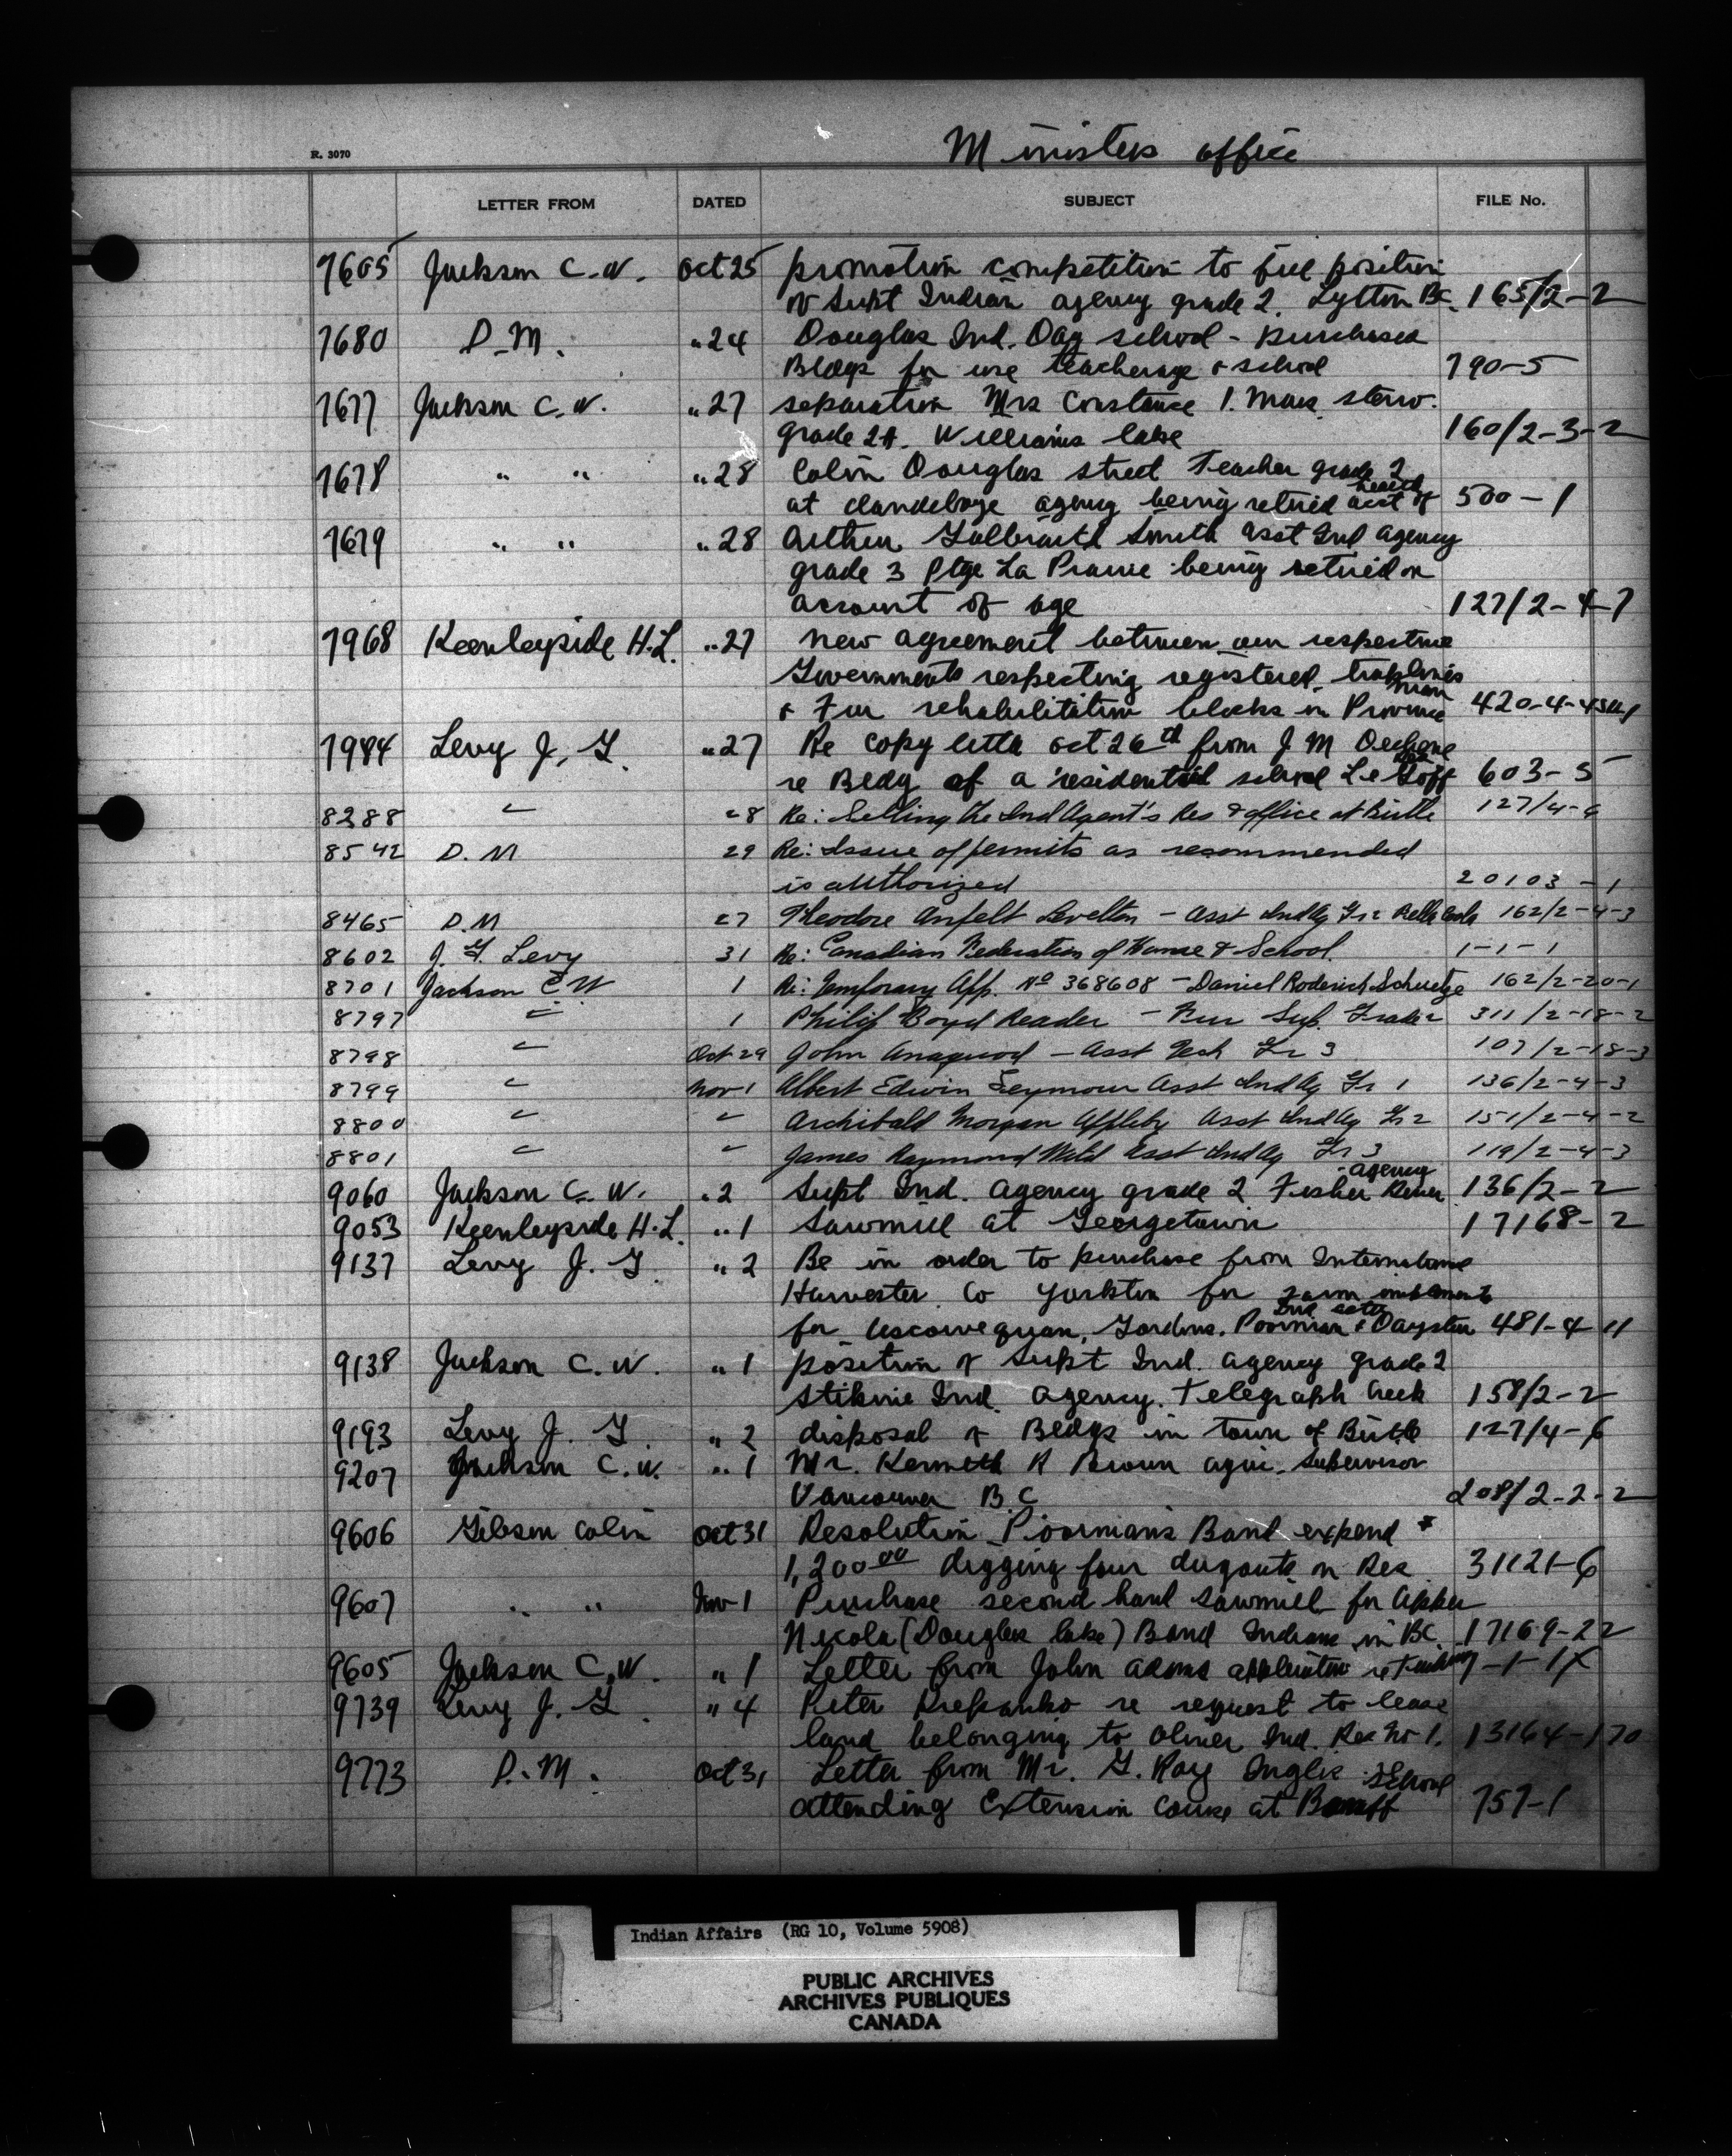 Ministers office
R. 3070
LETTER FROM DATED SUBJECT FILE No.
7605 Jackson C.W. Oct 25 promotion competition to fill position
of Supt Indian agency grade 2. Lytton BC. 165/2-2
7680 D.M. " 24 Douglas Ind. Day school - purchased
Bldgs for use teacherage & school 790-5
7677 Jackson C.W. " 27 separation Mrs Constance I. steno.
grade 2A. Williams Lake 160/2-3-2
7678 " " " 28 Colin Douglas street Teacher grade 2
at Clandeboye agency being retired acct of health 500-1
7679 " " " 28 Arthur Galbraith Smith Asst Ind agency
grade 3 Ptge La Prairie being retired on
account of age 127/2-4-7
7968 Keenleyside H.L. " 27 new agreement between our respective
Governments respecting registered traplines
& Fur rehabilitation blocks in Province 420-4-4
7984 Levy J. G. " 27 Re copy letter Oct 26th from J M Dechene
re Bldg of a residential school Le Goff 603-5
8288 " 28 Re: Selling the Ind Agent's Res & office at Birtle 127/4-6
8542 D.M 29 Re: Issue of permits as recommended
is authorized 20103-1
8465 D.M 27 Theodore Anfelt Levelton - Asst Ind Ag Gr 2 Bella Coola 162/2-4-3
8602 J. G. Levy 31 Re: Canadian Federation of Home & School. 1-1-1
8701 Jackson C W 1 Re: Temporary App. No 368608 - Daniel Roderick Schuetze 162/2-20-1
8797 " 1 Philip Boyd Reader - Fur Sup. Grade 2 311/2-18-2
8798 " Oct 29 John - Asst Tech Gr 3 107/2-18-3
8799 " Nov 1 Albert Edwin Seymour Asst Ind Ag Gr 1 136/2-4-3
8800 " " Archibald Morgan Appleby Asst Ind Ag Gr 2 151/2-4-2
8801 " " James Raymond Wild Asst Ind Ag Gr 3 119/2-4-3
9060 Jackson C. W. " 2 Supt Ind. Agency grade 2 Fisher River agency 136/2-2
9053 Keenleyside H.L. " 1 Sawmill at Georgetown 17168-2
9137 Levy J. G. " 2 Be in order to purchase from International
Harvester Co Yorkton for farm implements
for Muscowequan, Gordons, Poorman & Daystar 481-4-11
9138 Jackson C.W. " 1 position of Supt Ind. agency grade 2
Stikine Ind. Agency. Telegraph Creek 158/2-2
9193 Levy J. G. " 2 disposal of Bldgs in town of Birtle 127/4-6
9207 Jackson C.W. " 1 Mr. Kenneth R Brown agri. supervisor
Vancouver B.C 208/2-2-2
9606 Gibson Colin Oct 31 Resolution Poormans Band expend $
1,200.00 digging four dugouts on Res 31121-6
9607 " " Nov 1 Purchase second hand sawmill for Upper
Nicola (Douglas lake) Band Indians in BC. 17169-22
9605 Jackson C.W. " 1 Letter from John Adams application re
9739 Levy J. G. " 4 Peter re request to lease
land belonging to Oliver Ind. Res No 1. 13164-170
9773 D.M. Oct 31 Letter from Mr. G. Roy Inglis
attending Extension course at Banff school 757-1
Indian Affairs (RG 10, Volume 5908)
PUBLIC ARCHIVES
ARCHIVES PUBLIQUES
CANADA